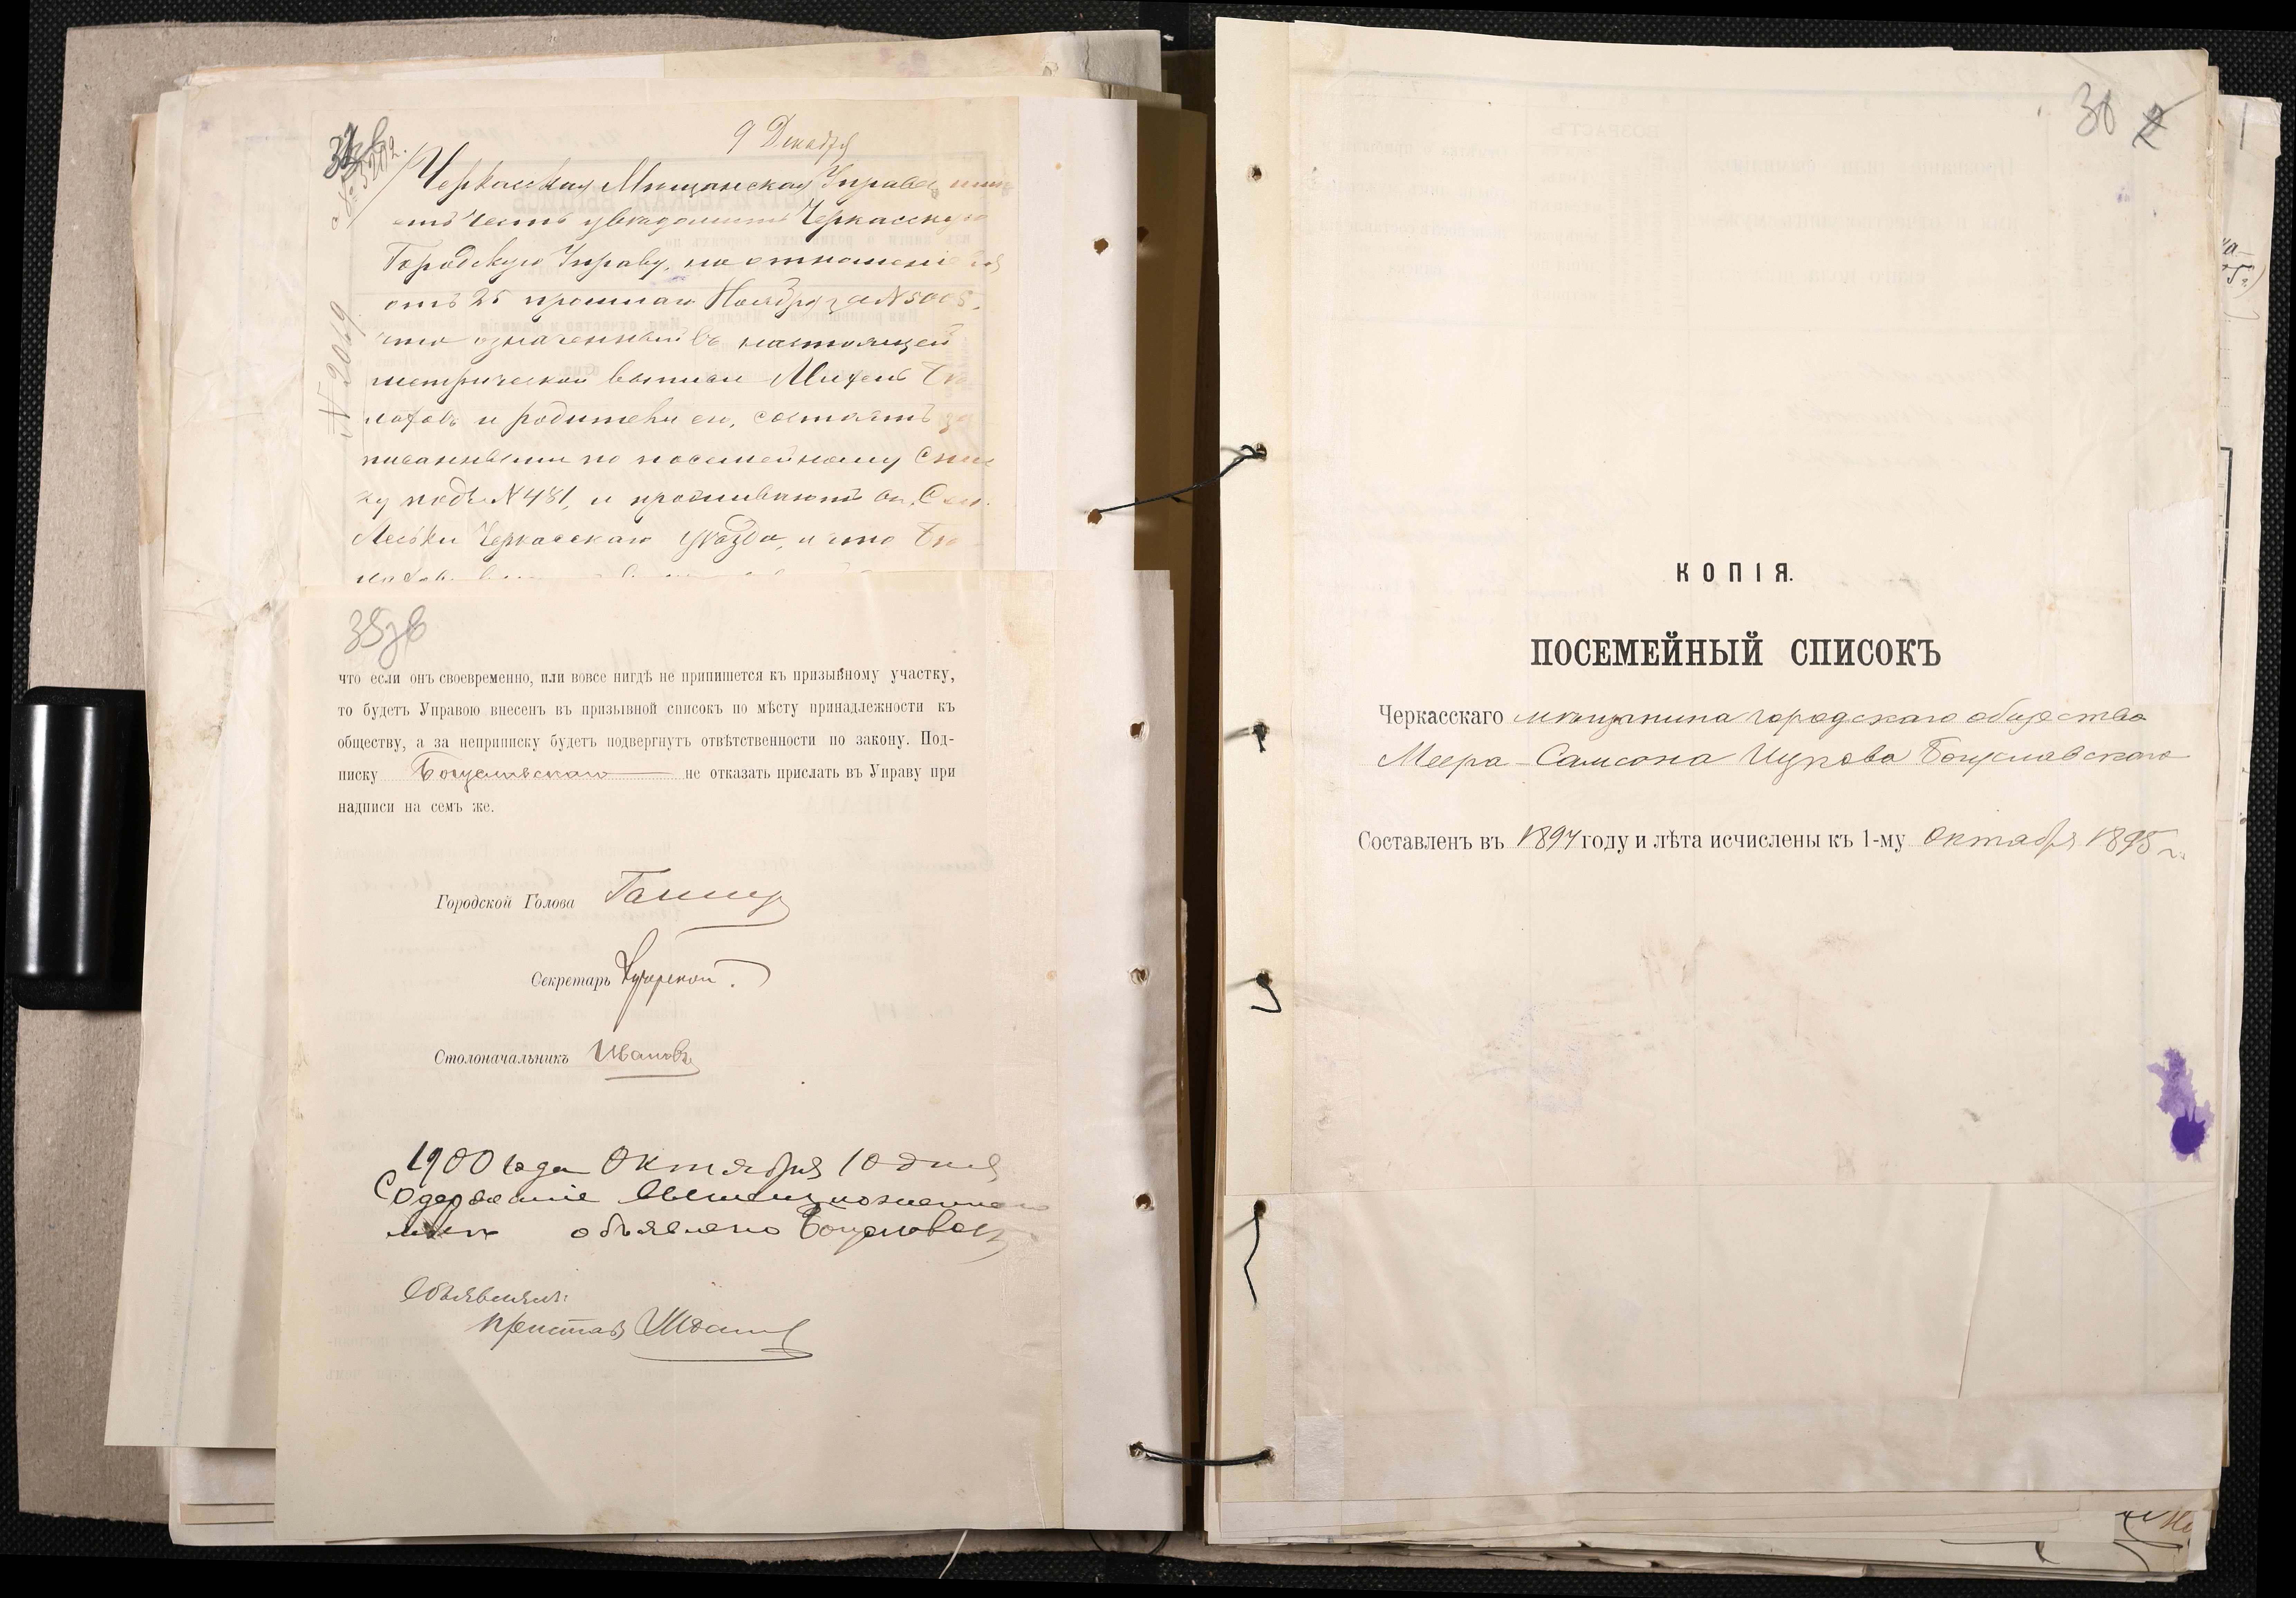 9 Декабря
Черкасская Мещанская Управа имѣ-
етъ честь увѣдомить Черкасскую
Городскую Управу, на отношеніе ея
отъ 25 прошлаго Ноября за № 5005,
что означенный въ настоящей
метрической выписи
и родители его, состоятъ за
писанными по посемейному спис
ку подъ № 481, и проживаютъ въ
Черкасскаго уѣзда, и что
№ 2049
35 об
что если онъ своевременно, или вовсе нигдѣ не припишется къ призывному участку,
то будетъ Управою внесенъ въ призывной списокъ по мѣсту принадлежности къ
обществу, а за неприписку будетъ подвергнутъ отвѣтственности по закону. Под-
писку Богуславскаго не отказать прислать въ Управу при
надписи на семъ же.
Городской Голова
Секретарь
Столоначальникъ Ивановъ
1900 года Октября 10 дня
Содержаніе вышеизложеннаго
объявлено Богуславск
Объявлялъ:
Приставъ
36
КОПІЯ.
ПОСЕМЕЙНЫЙ СПИСОКЪ
Черкасскаго мѣщанина городскаго общества
Меера-Самсона Ицкова Богуславскаго
Составленъ въ 1894 году и лѣта исчислены къ 1-му октября 1895 г.